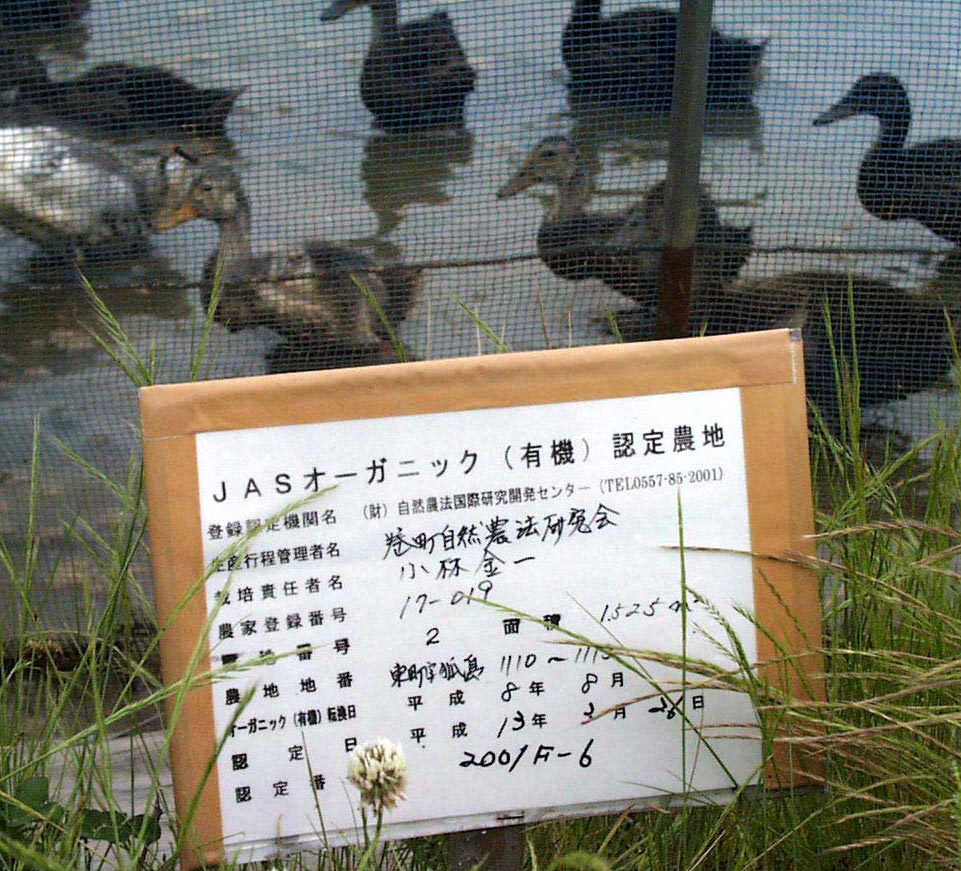 JASオーガニック（有機）認定農地
登録認定機関名 （財）自然農法国際研究開発センター（TEL0557-85-2001）
生産行程管理者名 巻町自然農法研究会
栽培責任者名 小林金一
農家登録番号 17-019
農地番号 2 面積 1525㎡
農地地番 1110～
オーガニック（有機）転換日 平成 8年 8月
認定日 平成 13年 月 26日
認定番 2001F-6